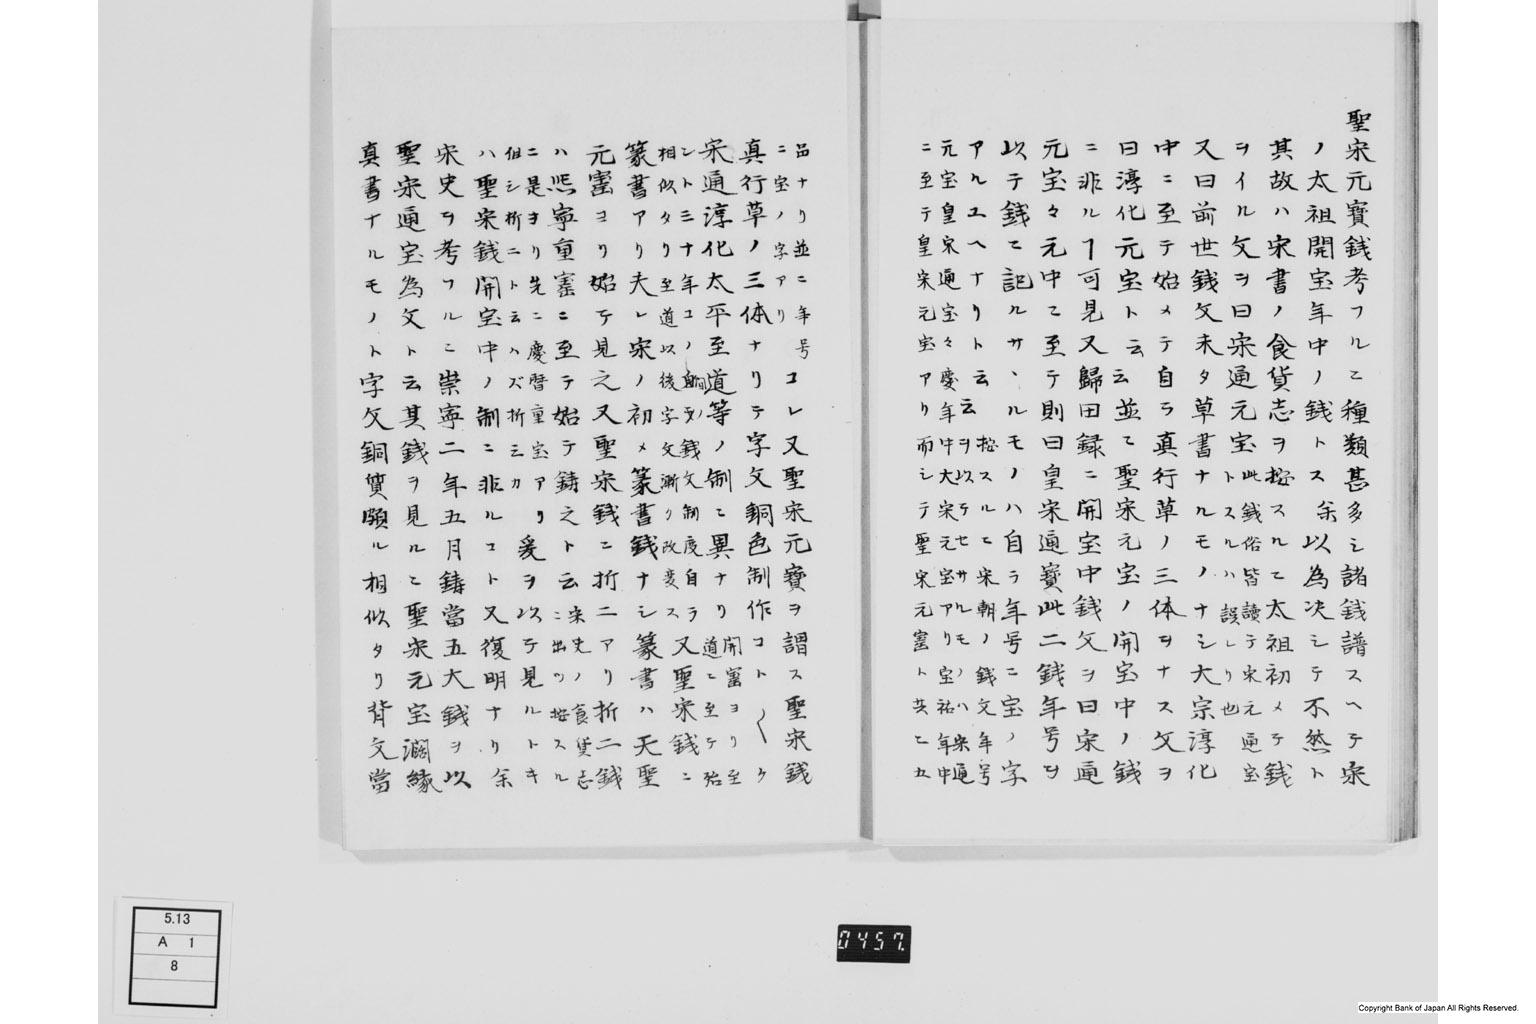 聖宋元寳銭考フルニ種類甚多シ諸銭譜スヘテ宋
ノ太祖開宝年中ノ銭トス余以為决シテ不然ト
其故ハ宋書ノ食貨志ヲ按スルニ太祖初メテ銭
ヲイル文ヲ曰宋通元宝
此銭俗皆讀テ宋元通宝
トスルハ誤レリ也
又曰前世銭文未タ草書ナルモノナシ大宗淳化
中ニ至テ始メテ自ラ真行草ノ三体ヲナス文ヲ
曰淳化元宝ト云云並ニ聖宋元宝ノ開宝中ノ銭
ニ非ルヿ可見又歸田録ニ開宝中銭文ヲ曰宋通
元宝々元中ニ至テ則曰皇宋通寳此二銭年号ヲ
以テ銭ニ記ルサヽルモノハ自ラ年号ニ宝ノ字
アルユヘナリト云云
按スルニ宋朝ノ銭文年号
ヲ以テセサルモノハ宋通
元宝皇宋通宝々慶年中大宋元宝アリ宝祐年中
ニ至テ皇宋元宝アリ而シテ聖宋元寳ト共ニ五
品ナリ並ニ年号
ニ宝ノ字アリ
コレ又聖宋元寳ヲ謂ス聖宋銭
真行草ノ三体ナリテ字文銅色制作コト〱ク
宋通淳化太平至道等ノ制ニ異ナリ
開寳ヨリ至
道ニ至テ殆
ント三十年コノ間ノ銭文制度自ラ
相似タリ至道以後字文漸ク改変ス
又聖宋銭ニ
篆書アリ夫レ宋ノ初メ篆書銭ナシ篆書ハ天聖
元寳ヨリ始テ見之又聖宋銭ニ折二アリ折二銭
ハ凞寧重寳ニ至テ始テ鋳之ト云
宋史ノ食貨志
ニ出ツ按スル
ニ是ヨリ先ニ慶暦重宝アリ
但シ折二ト云ハズ折三カ
爰ヲ以テ見ルトキ
ハ聖宋銭開宝中ノ制ニ非ルコト又復明ナリ余
宋史ヲ考フルニ崇寧二年五月鋳當五大銭ヲ以
聖宋通宝為文ト云其銭ヲ見ルニ聖宋元宝濶縁
真書ナルモノト字文銅質頗ル相似タリ背文當
5.13
A 1
8
0457.
Copyright Bank of Japan All Rights Reserved.